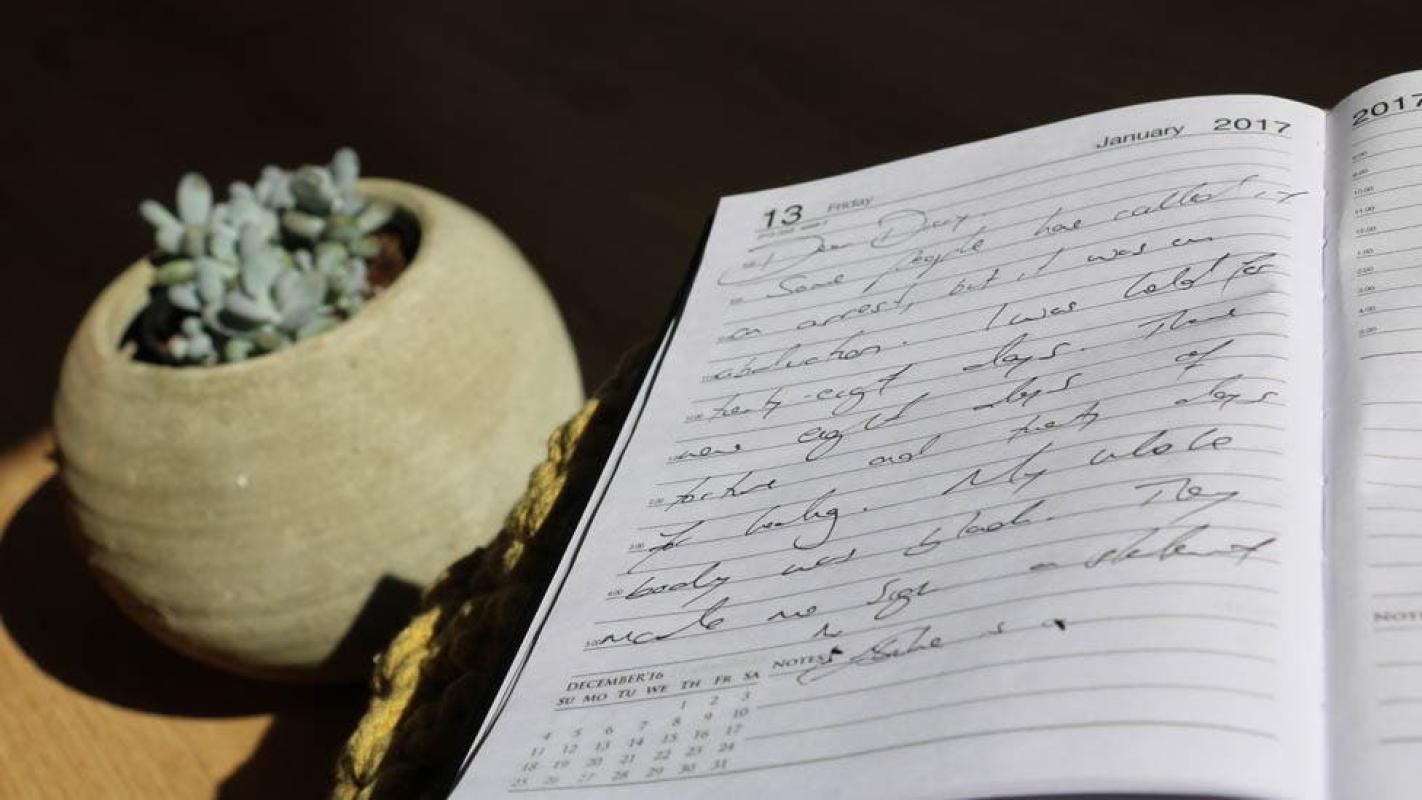 January 2017
13 Friday
Dear Diary.
Some people have called it
an arrest, but it was an
abduction. I was held for
twenty-eight days. There
were eight days of
torture and twenty days
for healing. My whole
body was black. They
made me sign a statement
NOTES
is a
DECEMBER'16
SU MO TU WE TH FR SA
1 2 3
4 5 6 7 8 9 10
11 12 13 14 15 16 17
18 19 20 21 22 23 24
25 26 27 28 29 30 31
2017
9.00
10.00
11.00
12.00
1.00
2.00
3.00
4.00
5.00